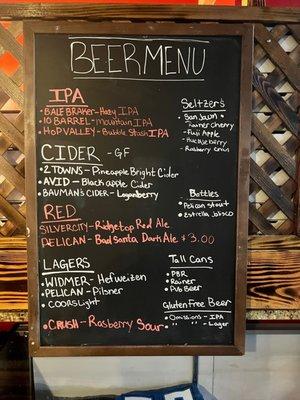 BEER MENU
IPA
• BALE BRAKER - Hazy IPA
• 10 BARREL - mountain IPA
• HOP VALLEY - Bubble Stash IPA
CIDER - GF
• 2 TOWNS - Pineapple Bright Cider
• AVID - Black apple Cider
• BAUMAN'S CIDER - Loganberry
RED
SILVERCITY - Ridgetop Red Ale
PELICAN - Bad Santa Dark Ale $3.00
LAGERS
• WIDMER - Hefweizen
• PELICAN - Pilsner
• COORS Light
• CRUSH - Rasberry Sour
Seltzer's
• San Juan
- Rainier cherry
- Fuji Apple
- Huckleberry
- Rasberry Cirus
Bottles
• Pelican stout
• Estrella Jalisco
Tall Cans
• PBR
• Rainer
• Pub Beer
Gluten Free Beer
• Omissions - IPA
• " " - Lager